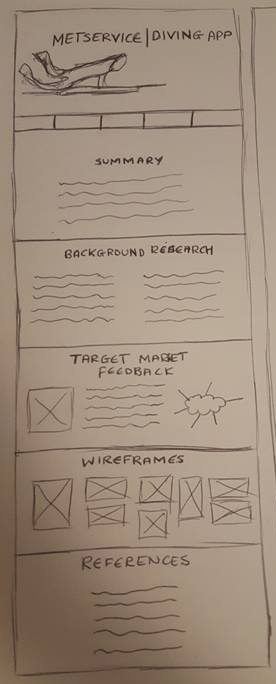 METSERVICE | DIVING APP
SUMMARY
BACKGROUND RESEARCH
TARGET MARKET
FEEDBACK
WIREFRAMES
REFERENCES